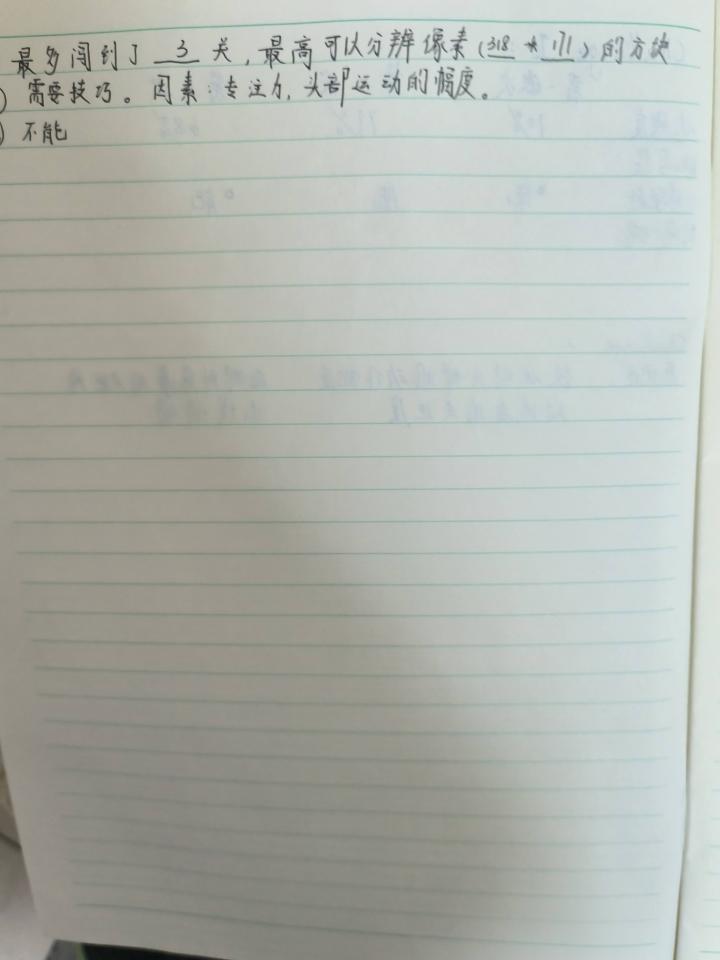 最多闯到了 3 关，最高可以分辨像素(318 * 171)的方块
) 需要技巧。因素：专注力，头部运动的幅度。
) 不能